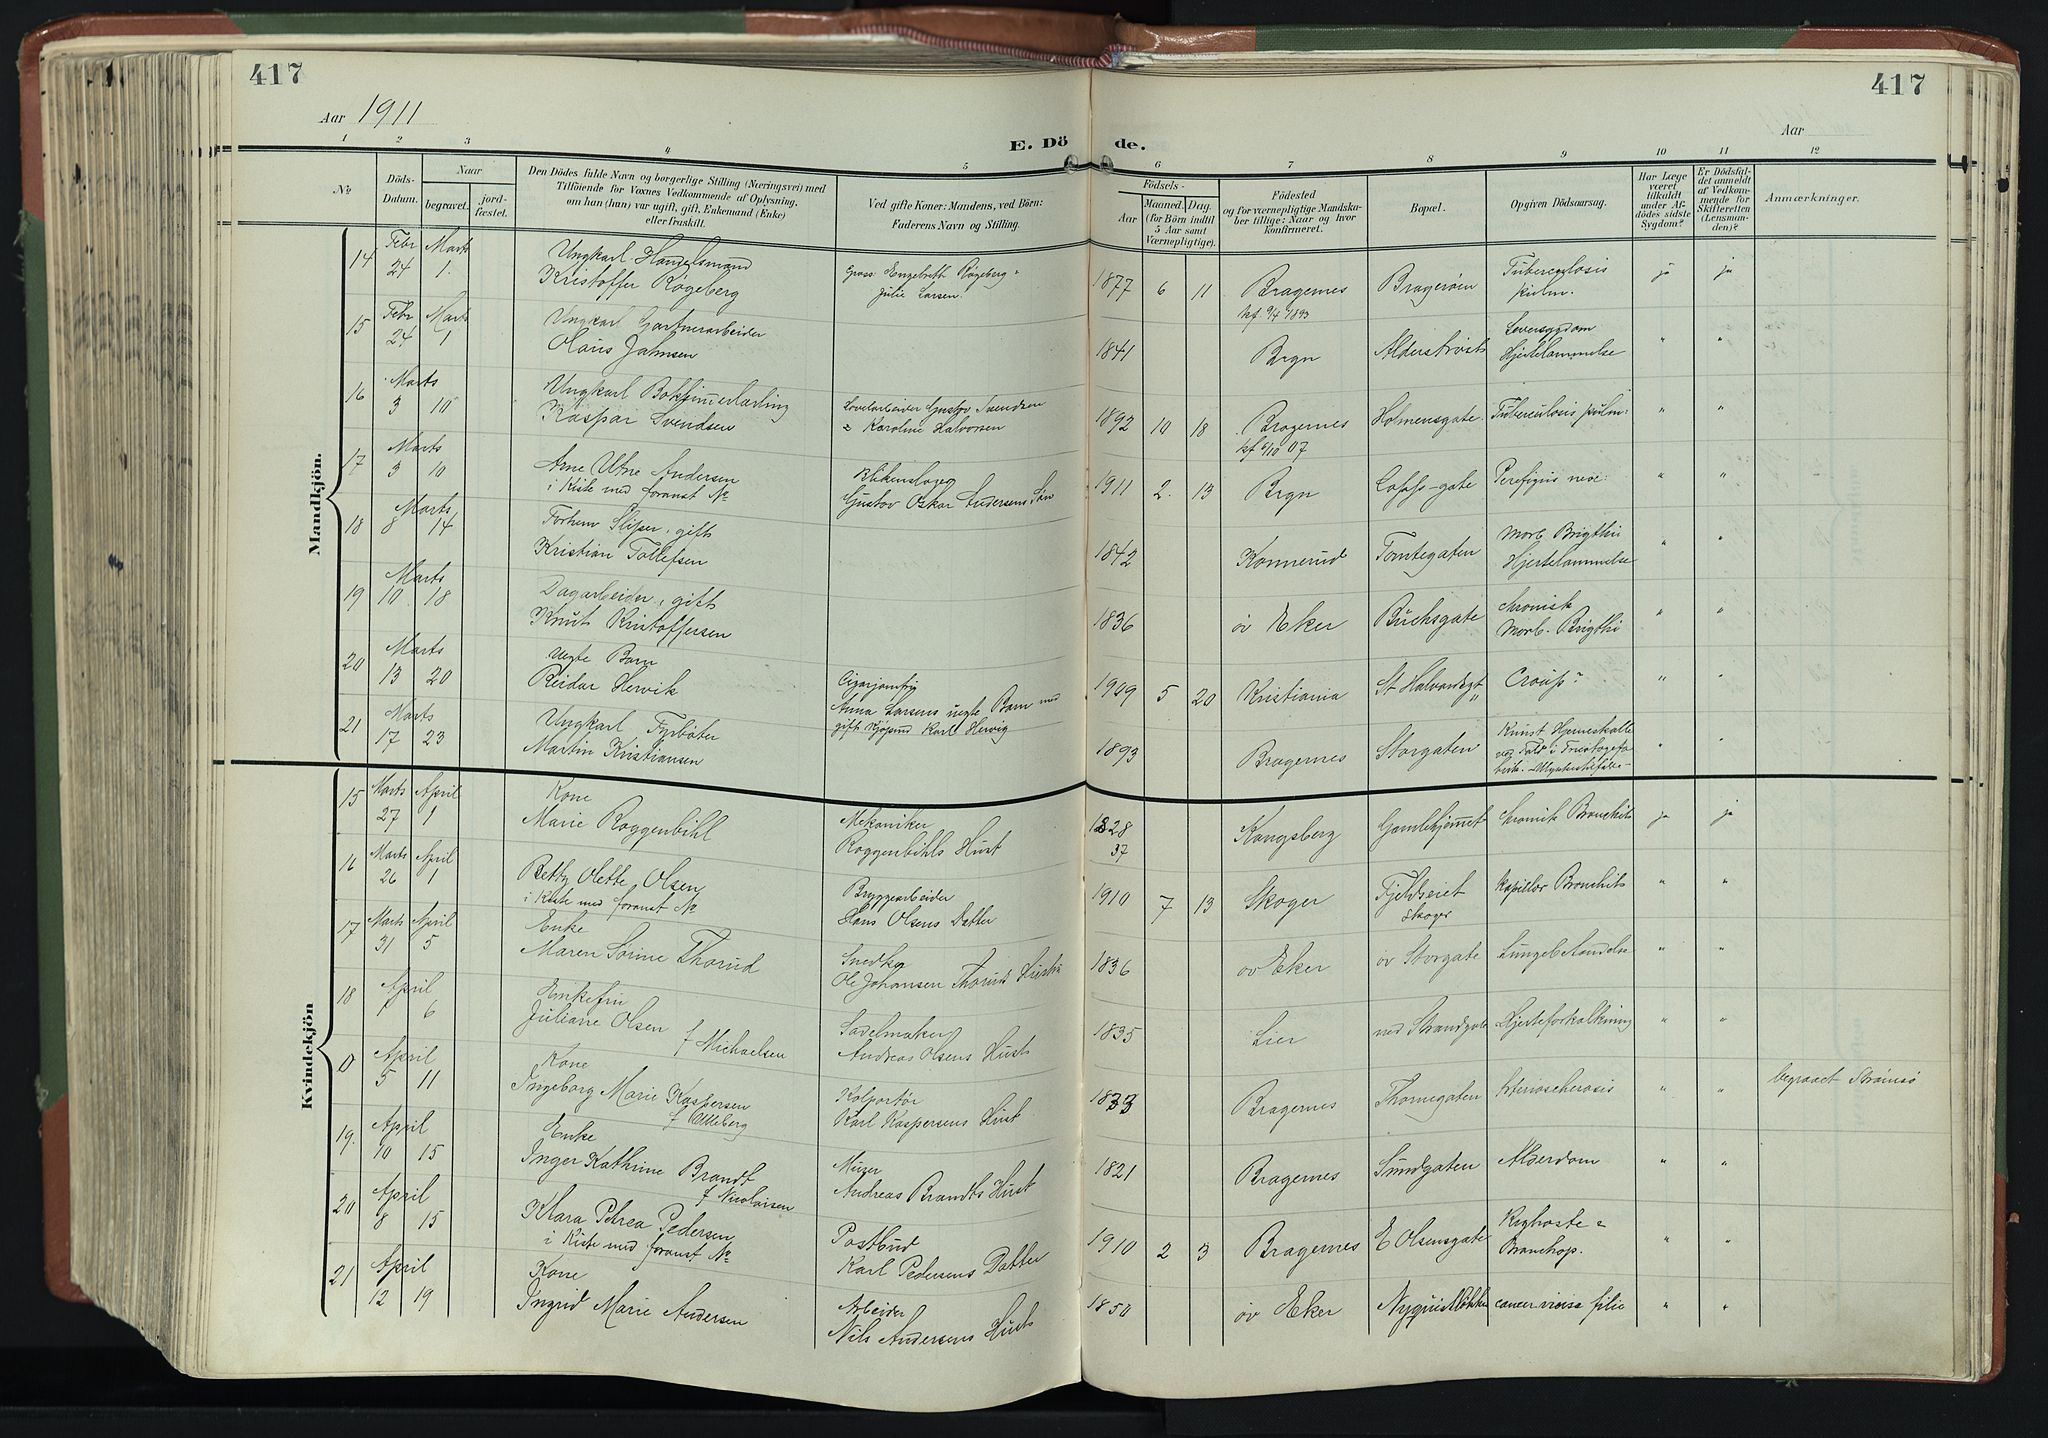 417
417
Aar 1911
Aar
E. Dö de.
1 2 3 4 5 6 7 8 9 10 11 12
No
Döds-Datum.
Naar
begravet.
jord-fæstet.
Den Dödes fulde Navn og borgerlige Stilling (Næringsvei) med
Tilföiende for Voxnes Vedkommende af Oplysning,
om han (hun) var ugift, gift, Enkemand (Enke)
eller fraskilt.
Ved gifte Koner: Mandens, ved Börn:
Faderens Navn og Stilling.
Födsels-
Aar
Maaned. Dag.
(for Börn indtil
5 Aar samt
Værnepligtige).
Födested
og for værnepligtige Mandska-
ber tillige: Naar og hvor
konfirmeret.
Bopæl.
Opgiven Dödsaarsag.
Har Læge
været
tilkaldt
under Af-
dödes sidste
Sygdom?
Er Dödsfal-
det anmeldt
af Vedkom-
mende for
Skifteretten
(Lensman-
den)?
Anmærkninger.
Mandkjön.
14 Febr 24 Marts 1. Ungkarl Handelsmand
Kristoffer Røgeberg
Engelbreth Røgeberg
Julie Larsen.
1877 6 11 Bragernes
kf. 9/4 1893
Bragerøen Tuberculosis
pulm. ja ja
15 Febr 24 Marts 1 Ungkarl Gartnerarbeider
Claus Jahnsen
1841 Brgn Alderstrøst Leversygdom
Hjertelammelse " "
16 Marts 3 10 Ungkarl
Kaspar Svendsen
Gustav Svendsen
Karoline Halvorsen
1892 10 18 Bragernes
kf 6/10 07
Holmensgate. Tuberculosis pulm: " "
17 Marts 3 10 Arne Utne Andersen
i Kiste med foranst No
Gustav Oskar Andersens Søn
1911 2. 13 Brgn " "
18 Marts 8 14 Forhen Sliper, gift
Kristian Tollefsen
1842 Konnerud Tomtegaten Morb Brigthii
Hjertelammelse " "
19 Marts 10 18 Dagarbeider, gift
Knut Kristoffersen
1836 øv Eker Buchsgate chronisk
Morb. Brigthii " "
20 Marts 13 20 uegte Barn
Reidar Hervik
Anna Larsens uegte Barn med
gift Karl Hervig
1909 5 20 Kristiania St Halvardsgt Croup " "
21 Marts 17 23 Ungkarl Fyrbøter
Martin Kristiansen
1893 Bragernes Storgaten " "
Kvindekjön
15 Marts 27 April 1 Kone
Marie Roggenbihl
Mekaniker
Roggenbihls Hust
1828
37
Kongsberg Gamlehjemmet chronisk Bronchit ja ja
16 Marts 26 April 1 Betby Olette Olsen
i Kiste med foranst No
Bryggearbeider
Hans Olsens Datter
1910 7 13 Skoger Fjeldseiet
Skoger
kapillær Bronchit " "
17 Marts 31 April 5 Enke
Maren Sorine Thorud
Snedker
Ole Johansen Thoruds Hustru
1836 øv Eker øv Storgate Lungebetændelse " "
18 April 1 6 Enkefru
Juliane Olsen
f Michaelsen
Sadelmaker
Andreas Olsens Hust
1835 Lier ned Strandgate Hjerteforkalkning " "
0 April 5 11 Kone
Ingeborg Marie Kaspersen
Kolportør
Karl Kaspersens Hust
1833 Bragernes Thornegaten Arterioscherosis " " begravet Strømsø
19. April 10 15 Enke
Inger Kathrine Brandt
f Nicolaisen
Murer
Andreas Brandts Hust
1821 Bragernes Sundgaten Alderdom " "
20 April 8 15 Klara Petrea Pedersen
i Kiste med foranst No
Postbud
Karl Pedersens Datter
1910 2 3 Bragernes E Olsensgate Kighoste
Bronchop. " "
21 April 12 19 Kone
Ingrid Marie Andersen
Arbeider
Nils Andersens Hust
1850 øv Eker cancer " "